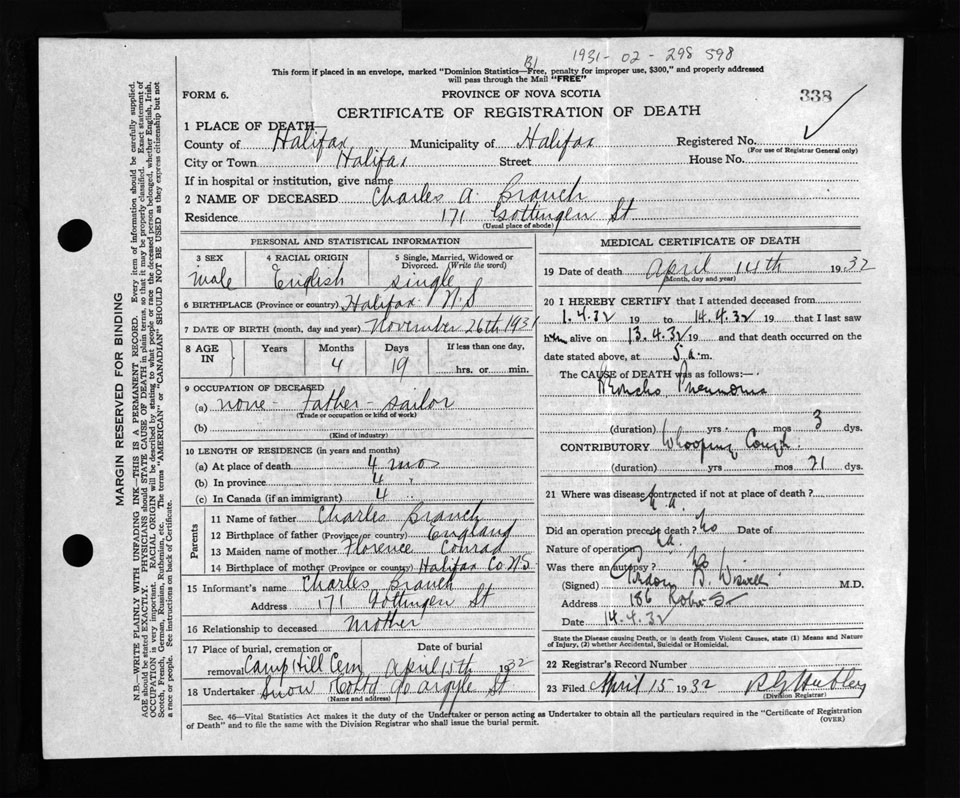 1931-02-298 598
This form if placed in an envelope, marked "Dominion Statistics—Free, penalty for improper use, $300," and properly addressed
will pass through the Mail "FREE"
FORM 6.
PROVINCE OF NOVA SCOTIA
338
CERTIFICATE OF REGISTRATION OF DEATH
1 PLACE OF DEATH—
County of Halifax Municipality of Halifax Registered No.
(For use of Registrar General only)
City or Town Halifax Street House No.
If in hospital or institution, give name
2 NAME OF DECEASED Charles A. Branch
Residence 171 Gottingen St
(Usual place of abode)
PERSONAL AND STATISTICAL INFORMATION
3 SEX 4 RACIAL ORIGIN 5 Single, Married, Widowed or
Divorced. (Write the word)
Male English single
6 BIRTHPLACE (Province or country) Halifax N.S
7 DATE OF BIRTH (month, day and year) November 26th 1931
8 AGE Years Months Days If less than one day,
IN 4 19 hrs. or min.
9 OCCUPATION OF DECEASED
(a) none - Father - sailor
(Trade or occupation or kind of work)
(b)
(Kind of industry)
10 LENGTH OF RESIDENCE (in years and months)
(a) At place of death 4 mos
(b) In province 4 "
(c) In Canada (if an immigrant) 4 "
Parents
11 Name of father Charles Branch
12 Birthplace of father (Province or country) England
13 Maiden name of mother Florence Conrad
14 Birthplace of mother (Province or country) Halifax Co NS
15 Informant's name Charles Branch
Address 171 Gottingen St
16 Relationship to deceased Mother
17 Place of burial, cremation or Date of burial
removal Camp Hill Cem April 15th 1932
18 Undertaker Snow & Co Ltd 90 Argyle St
(Name and address)
MEDICAL CERTIFICATE OF DEATH
19 Date of death April 14th 1932
(Month, day and year)
20 I HEREBY CERTIFY that I attended deceased from
1.4.32 19 to 14.4.32 19 that I last saw
him alive on 13.4.32 19 and that death occurred on the
date stated above, at 5 a.m.
The CAUSE of DEATH was as follows:—
Broncho Pneumonia
(duration) yrs mos 3 dys.
CONTRIBUTORY Whooping Cough
(duration) yrs mos 21 dys.
21 Where was disease contracted if not at place of death?
n.a.
Did an operation precede death? No Date of
Nature of operation
Was there an autopsy? No
(Signed) B. Wiswell M.D.
Address 186
Date 14.4.32
State the Disease causing Death, or in death from Violent Causes, state (1) Means and Nature
of Injury, (2) whether Accidental, Suicidal or Homicidal.
22 Registrar's Record Number
23 Filed April 15 1932
(Division Registrar)
Sec. 46—Vital Statistics Act makes it the duty of the Undertaker or person acting as Undertaker to obtain all the particulars required in the "Certificate of Registration
of Death" and to file the same with the Division Registrar who shall issue the burial permit. (OVER)
MARGIN RESERVED FOR BINDING
N.B.—WRITE PLAINLY WITH UNFADING INK—THIS IS A PERMANENT RECORD. Every item of information should be carefully supplied.
AGE should be stated EXACTLY. PHYSICIANS should STATE CAUSE OF DEATH in plain terms, so that it may be properly classified. Exact statement of
OCCUPATION is very important. RACIAL ORIGIN will be described by stating to what people or race the deceased person belonged, whether English, Irish,
Scotch, French, German, Russian, Ruthenian, etc. The terms "AMERICAN" or "CANADIAN" SHOULD NOT BE USED as they express citizenship but not
a race or people. See instructions on back of Certificate.